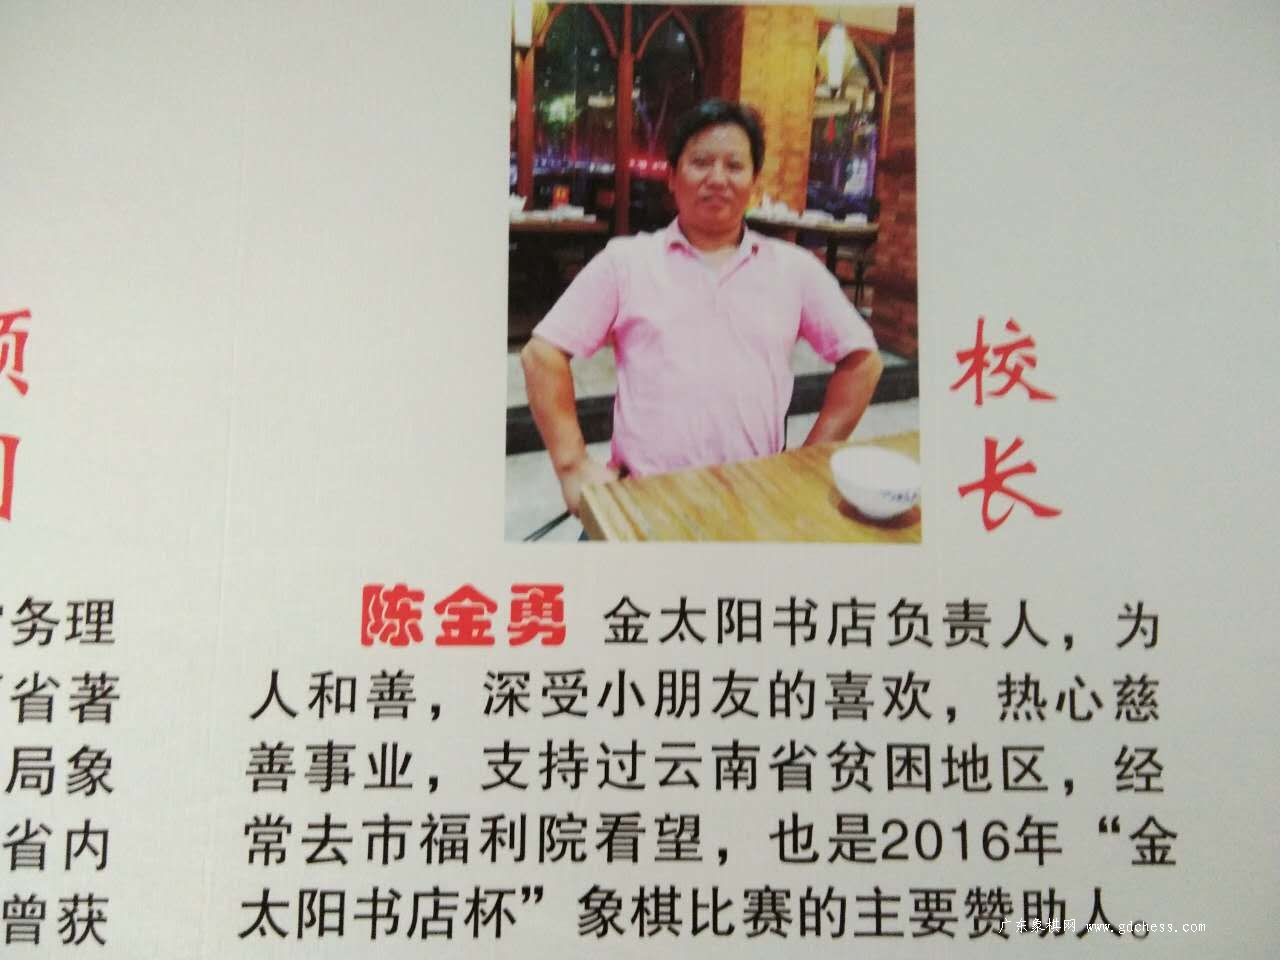 校
长
陈金勇 金太阳书店负责人，为
人和善，深受小朋友的喜欢，热心慈
善事业，支持过云南省贫困地区，经
常去市福利院看望，也是2016年“金
太阳书店杯”象棋比赛的主要赞助人。
务理
省著
局象
省内
曾获
广东象棋网 www.gdchess.com